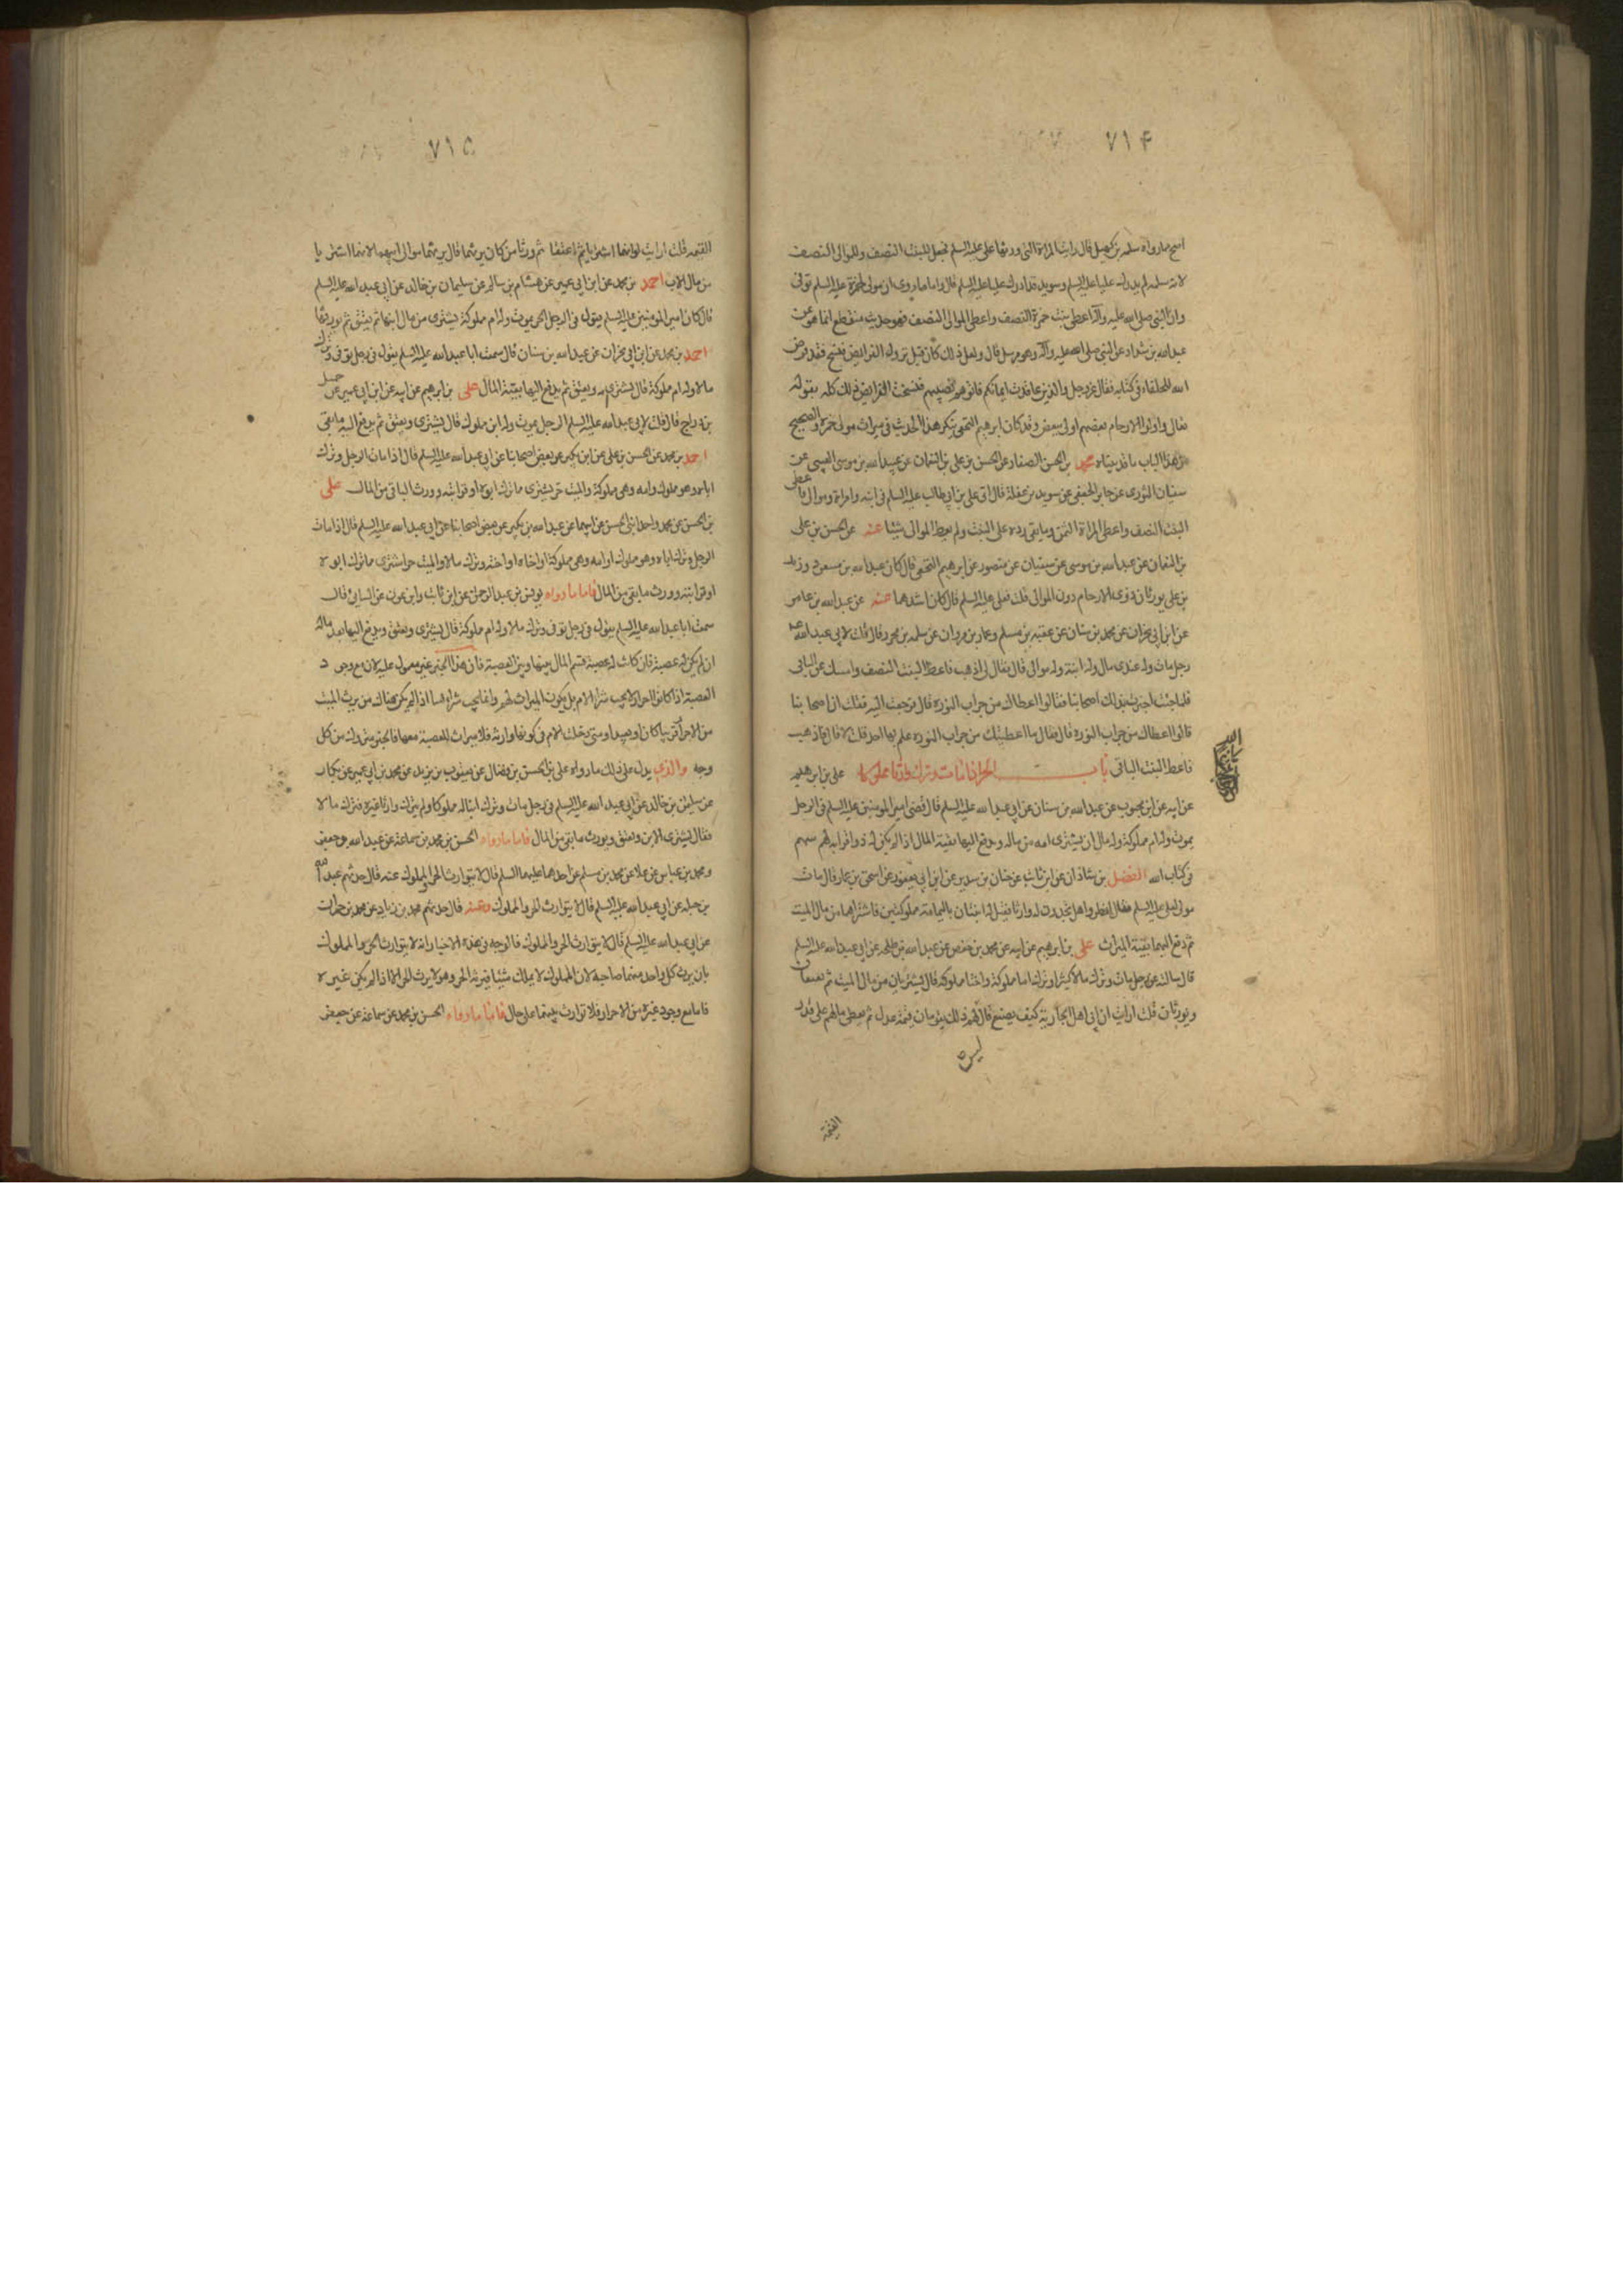 ٧١۴
اصح مما رواه سلمه بن كهيل قال رايت المراة التى ورثها على عليه السلم فجعل للبنت النصف وللموالى النصف
لانه سلمه لم يدرك عليا عليه السلم وسويد قد ادرك عليا عليه السلم قال واما ما روى ان مولى لحمزة عليه السلم توفى
وان النبى صلى الله عليه وآله اعطى بنت حمزة النصف واعطى الموالى النصف فهو حديث منقطع انما هو عن
عبد الله بن شداد عن النبى صلى الله عليه وآله وهو مرسل قال ولعل ذلك كان قبل نزول الفرايض فنسخ فقد فرض
الله للحلفاء فى كتابه فقال عز وجل والذين عاقدت ايمانكم فاتوهم نصيبهم فنسخت الفرايض ذلك كله بقوله
تعالى واولوا الارحام بعضهم اولى ببعض وقد كان ابرهيم النخعى ينكر هذا الحديث فى ميراث مولى حمزة والصحيح
من هذا الباب ما قد بيناه محمد بن الحسن الصفار عن الحسن بن على بن النعمان عن عبيد الله بن موسى العبسى عن
سفيان الثورى عن جابر الجعفى عن سويد بن غفلة قال اتى على بن ابى طالب عليه السلم فى ابنه وامراة وموالى فاعطى
البنت النصف واعطى المراة الثمن وما بقى رده على البنت ولم يعط الموالى شيئا عنه عن الحسن بن على
بن النعمان عن عبيد الله بن موسى عن سفيان عن منصور عن ابرهيم النخعى قال كان عبد الله بن مسعود وزيد
بن على يورثان ذوى الارحام دون الموالى قلت فعلى عليه السلم قال كان اشدهما عنه عن عبد الله بن عامر
عن ابن ابى نجران عن محمد بن سنان عن عقبه بن مسلم وعمار بن مروان عن سلمه بن محرز قال قلت لابى عبد الله ع
رجل مات وله عندى مال وله ابنة وله موالى قال فقال لى اذهب فاعط البنت النصف وامسك عن الباقى
فلما جئت اخبرت بذلك اصحابنا فقالوا اعطاك من جراب النورة قال فرجعت اليه فقلت ان اصحابنا
قالوا اعطاك من جراب النورة قال فقال ما اعطيتك من جراب النورة علم بها احد قلت لا قال فاذهب
فاعط البنت الباقى باب الحر اذا مات وترك وارثا مملوكا على بن ابرهيم
عن ابيه عن ابن محبوب عن عبد الله بن سنان عن ابى عبد الله عليه السلم قال قضى امير المومنين عليه السلم فى الرجل
يموت وله ام مملوكة وله مال ان يشترى امه من ماله ويدفع اليها بقية المال اذا لم يكن له ذو قرابه لهم سهم
فى كتاب الله الفضل بن شاذان عن ابن ثابت عن حنان بن سدير عن ابن ابى يعفور عن اسحق بن عمار قال مات
مولى لعلى عليه السلم فقال انظروا هل تجدون له وارثا فقيل له ابنتان باليمامة مملوكتين فاشتراهما من مال الميت
ثم دفع اليهما بقية الميراث على بن ابرهيم عن ابيه عن محمد بن حفص عن عبد الله بن طلحه عن ابى عبد الله عليه السلم
قال سالته عن رجل مات وترك مالا كثيرا وترك اما مملوكة واختا مملوكة قال يشتريان من مال الميت ثم يعتقان
ويورثان قلت ارايت ان ابى اهل الجارية كيف يصنع قال ليس لهم ذلك يقومان قيمة عدل ثم يعطى مالهم على قدر
القيمة
٧١۵
القيمه قلت ارايت لو انهما اشتريا ثم اعتقا ثم ورثا من كان يرثهما قال يرثهما موالى ابيهما لانهما اشتريا
من مال الاب احمد بن محمد عن ابن ابى عمير عن هشام بن سالم عن سليمان بن خالد عن ابى عبد الله عليه السلم
قال كان امير المومنين عليه السلم يقول فى الرجل الحر يموت وله ام مملوكة تشترى من مال ابنها ثم تعتق ثم يورثها
احمد بن محمد عن ابن ابى نجران عن عبد الله بن سنان قال سمعت ابا عبد الله عليه السلم يقول فى رجل توفى وترك
مالا وله ام مملوكة قال تشترى امه وتعتق ثم يدفع اليها بقية المال على بن ابرهيم عن ابيه عن ابن ابى عمير عن جميل
بن دراج قال قلت لابى عبد الله عليه السلم الرجل يموت وله ابن مملوك قال يشترى ويعتق ثم يدفع اليه ما بقى
احمد بن محمد عن الحسن بن على عن ابن بكير عن بعض اصحابنا عن ابى عبد الله عليه السلم قال اذا مات الرجل وترك
اباه وهو مملوك وامه وهى مملوكة والميت حر يشترى مما ترك ابوه او قرابته وورث الباقى من المال على
بن الحسن عن محمد واحمد ابنى الحسن عن ابيهما عن عبد الله بن بكير عن بعض اصحابنا عن ابى عبد الله عليه السلم قال اذا مات
الرجل وترك اباه وهو مملوك او امه وهى مملوكة او اخاه او اخته وترك مالا والميت حر اشترى مما ترك ابوه
او قرابته وورث ما بقى من المال فاما ما رواه يونس بن عبد الرحمن عن ابن ثابت وابن عون عن السائى قال
سمعت ابا عبد الله عليه السلم يقول فى رجل توفى وترك مالا وله ام مملوكة قال تشترى وتعتق ويدفع اليها بعد ماله
ان لم يكن له عصبة فان كانت له عصبة قسم المال بينها وبين العصبة فان هذا الخبر غير معمول عليه لان مع وجود
العصبة اذا كانوا احرارا لا يجب شراء الام بل يكون الميراث لهم وانما يجب شراؤها اذا لم يكن هناك من يرث الميت
من الاحرار قريبا كان او بعيدا ومتى دخلت الام فى كونها وارثه فلا ميراث للعصبة معها فالخبر متروك من كل
وجه والذى يدل على ذلك ما رواه على بن الحسن بن فضال عن يعقوب بن يزيد عن محمد بن ابى عمير عن بكار
عن سليمن بن خالد عن ابى عبد الله عليه السلم فى رجل مات وترك ابنا له مملوكا ولم يترك وارثا غيره فترك مالا
فقال يشترى الابن ويعتق ويورث ما بقى من المال فاما ما رواه الحسن بن محمد بن سماعة عن عبد الله وجعفر
ومحمد بن عباس عن علا عن محمد بن مسلم عن احدهما عليهما السلم قال لا يتوارث الحر والمملوك عنه قال حدثهم عبد الله
بن جبله عن ابى عبد الله عليه السلم قال لا يتوارث الحر والمملوك وعنه قال حدثهم محمد بن زياد عن محمد بن حمران
عن ابى عبد الله عليه السلم قال لا يتوارث الحر والمملوك فالوجه فى هذه الاخبار انه لا يتوارث الحر والمملوك
بان يرث كل واحد منهما صاحبه لان المملوك لا يملك شيئا فيرثه الحر وهو لا يرث الحر الا اذا لم يكن غيره
فاما مع وجود غيره من الاحرار فلا توارث بينهما على حال فاما ما رواه الحسن بن محمد عن سماعة عن جعفر